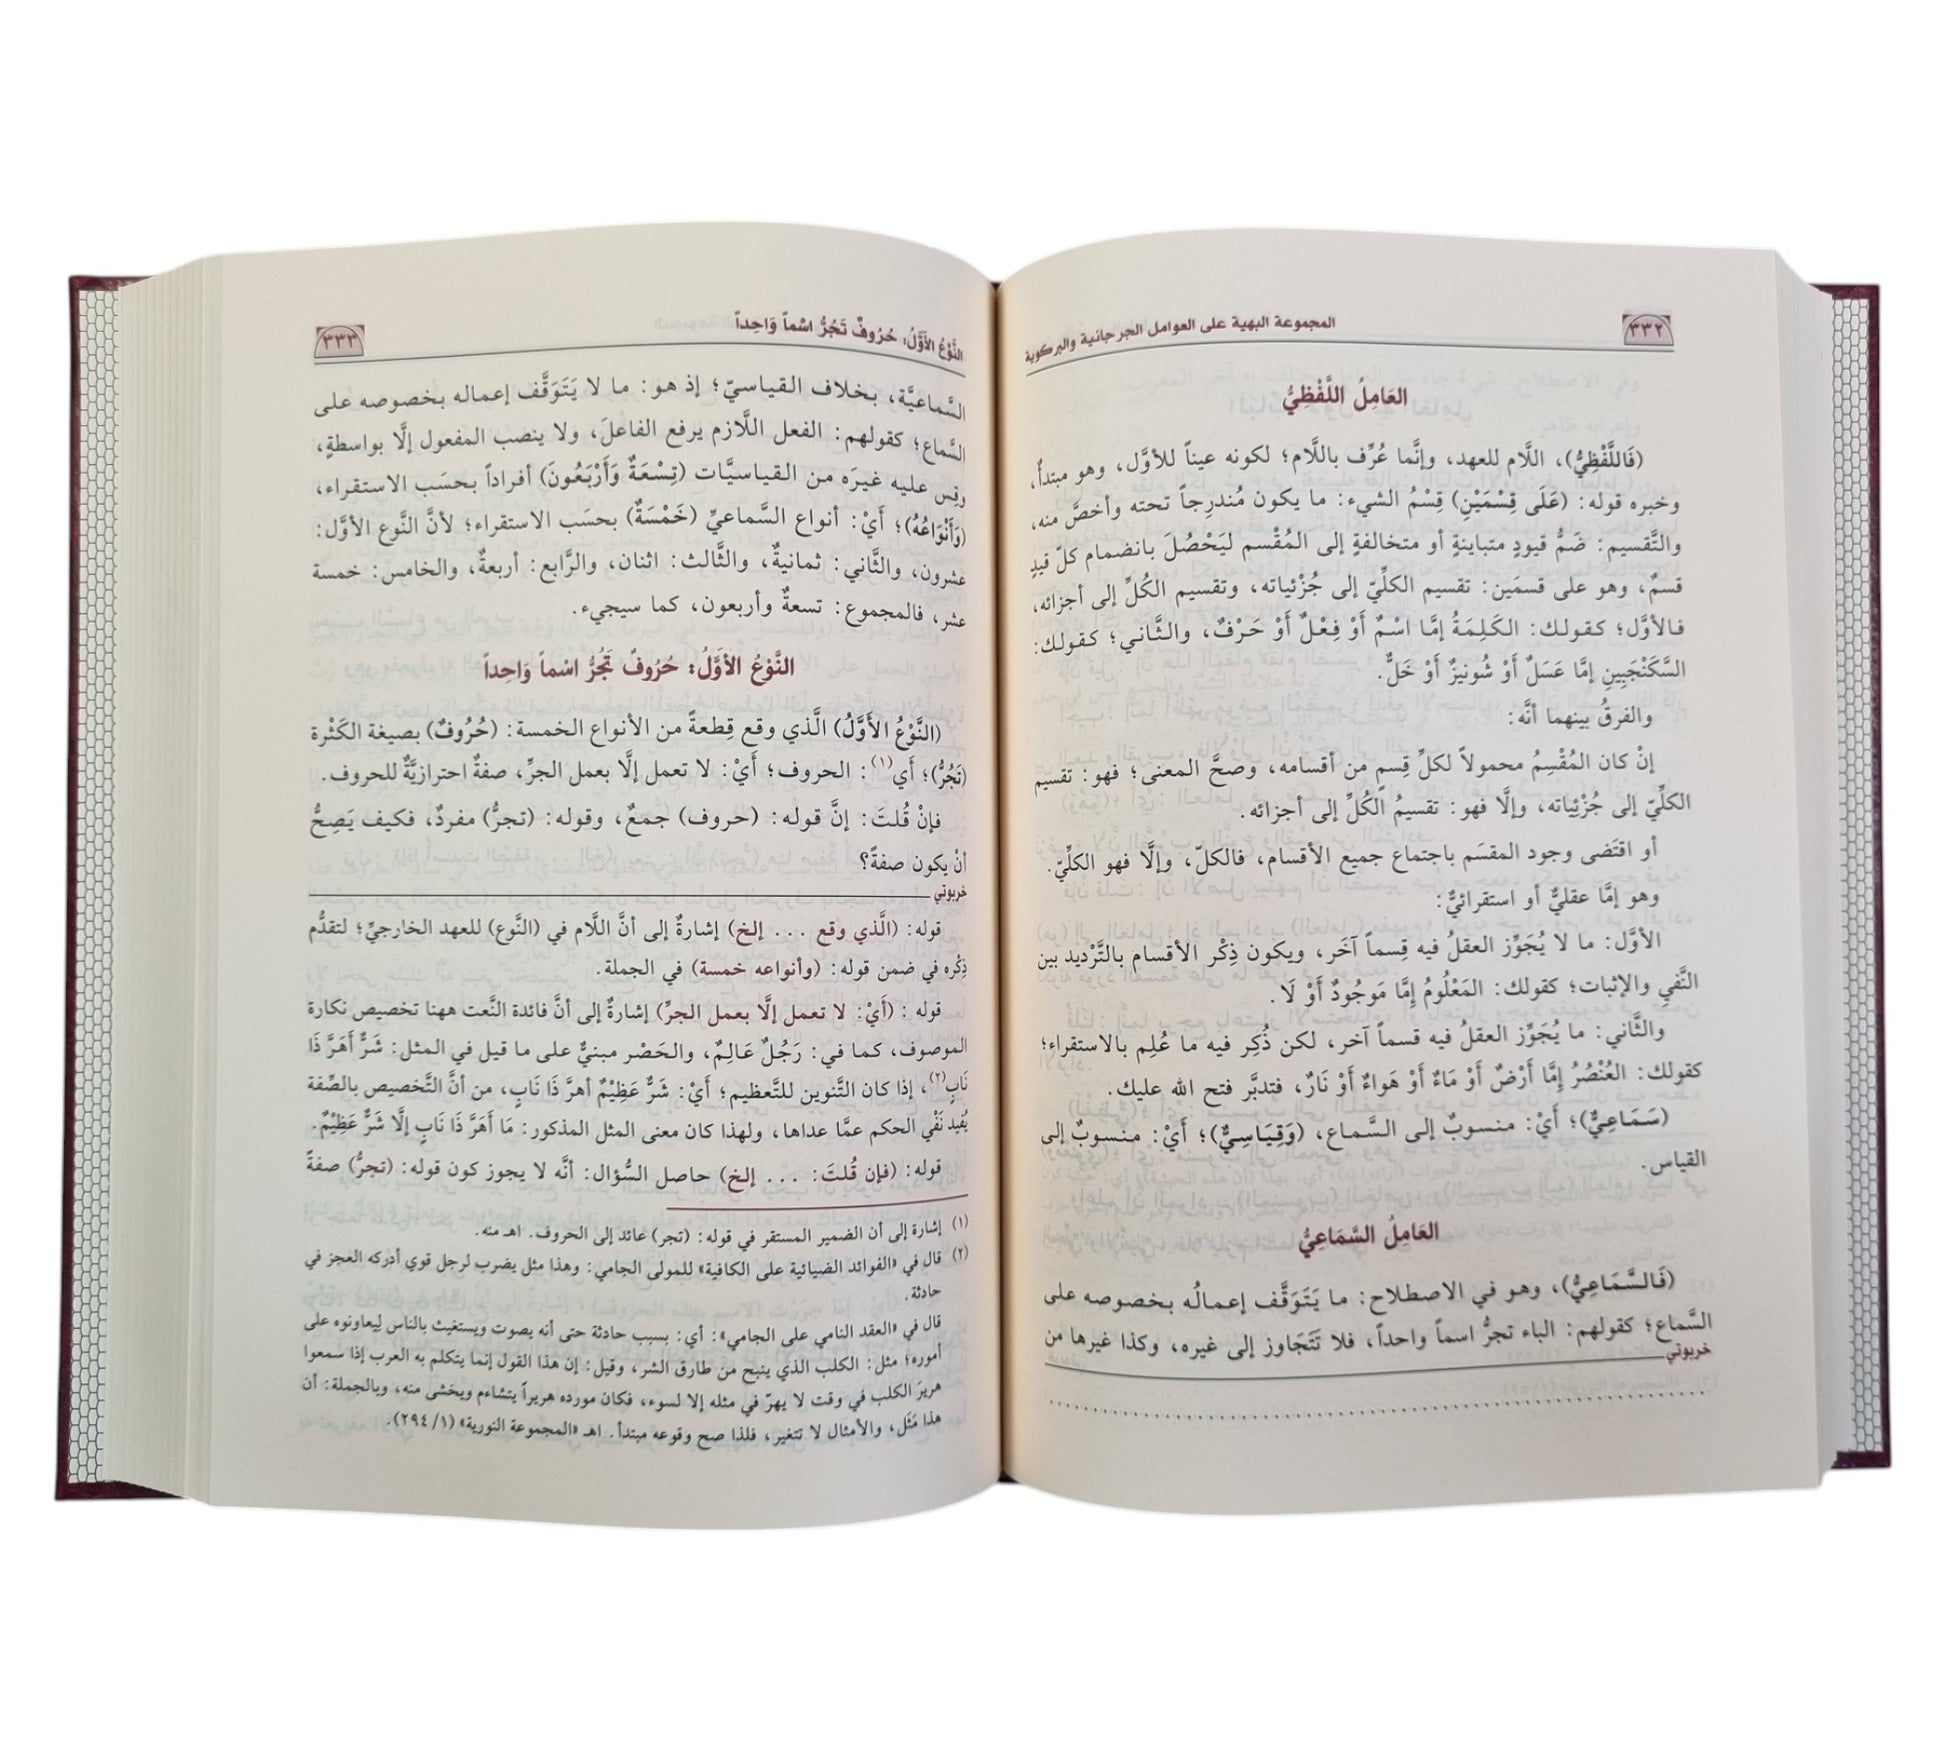 ٣٣٢
المجموعة البهية على العوامل الجرجانية والبركوية
العَامِلُ اللَّفْظِيُّ
(فَاللَّفْظِيُّ)، اللَّام للعهد، وإنَّما عُرِّف باللَّام؛ لكونه عيناً للأوَّل، وهو مبتدأٌ،
وخبره قوله: (عَلَى قِسْمَيْنِ) قِسْمُ الشيء: ما يكون مُندرِجاً تحته وأخصَّ منه،
والتَّقسيم: ضَمُّ قيودٍ متباينةٍ أو متخالفةٍ إلى المُقْسم ليَحْصُلَ بانضمام كلّ قيدٍ
قسمٌ، وهو على قسمَين: تقسيم الكلِّيّ إلى جُزْئياته، وتقسيم الكُلِّ إلى أجزائه،
فالأوَّل؛ كقولك: الكَلِمَةُ إمَّا اسْمٌ أَوْ فِعْلٌ أَوْ حَرْفٌ، والثَّاني؛ كقولك:
السَّكَنْجَبِينِ إمَّا عَسَلٌ أَوْ شُونيزٌ أَوْ خَلٌّ.
والفرقُ بينهما أنَّه:
إنْ كان المُقْسِمُ محمولاً لكلِّ قِسمٍ من أقسامه، وصحَّ المعنى؛ فهو: تقسيم
الكلِّيّ إلى جُزْئِياته، وإلَّا فهو: تقسيمُ الكُلِّ إلى أجزائه.
أو اقتَضى وجود المقسَم باجتماع جميع الأقسام، فالكلّ، وإلَّا فهو الكلِّيّ.
وهو إمَّا عقليٌّ أو استقرائيٌّ:
الأوَّل: ما لا يُجَوِّز العقلُ فيه قِسماً آخَر، ويكون ذِكْر الأقسام بالتَّرْديد بين
النَّفي والإثبات؛ كقولك: المَعْلُومُ إمَّا مَوجُودٌ أَوْ لَا.
والثَّاني: ما يُجَوِّز العقلُ فيه قسماً آخر، لكن ذُكِر فيه ما عُلِم بالاستقراء؛
كقولك: العُنْصُرُ إمَّا أَرْضٌ أَوْ مَاءٌ أَوْ هَواءٌ أَوْ نَارٌ، فتدبَّر فتح الله عليك.
(سَمَاعِيٌّ)؛ أيْ: منسوبٌ إلى السَّماع، (وَقِيَاسِيٌّ)؛ أيْ: منسوبٌ إلى
القياس.
العَامِلُ السَّمَاعِيُّ
(فَالسَّمَاعِيُّ)، وهو في الاصطلاح: ما يَتَوَقَّف إعمالُه بخصوصه على
السَّماع؛ كقولهم: الباء تجرُّ اسماً واحداً، فلا تَتَجَاوز إلى غيره، وكذا غيرها من
خربوتي
النَّوْعُ الأَوَّلُ: حُرُوفٌ تَجُرُّ اسْماً وَاحِداً
٣٣٣
السَّماعيَّة، بخلاف القياسيّ؛ إذ هو: ما لا يَتَوَقَّف إعماله بخصوصه على
السَّماع؛ كقولهم: الفعل اللَّازم يرفع الفاعلَ، ولا ينصب المفعول إلَّا بواسطةٍ،
وقِس عليه غيرَه من القياسيَّات (تِسْعَةٌ وَأَرْبَعُونَ) أفراداً بحسَب الاستقراء،
(وَأَنْوَاعُهُ)؛ أيْ: أنواع السَّماعيِّ (خَمْسَةٌ) بحسَب الاستقراء؛ لأنَّ النَّوع الأوَّل:
عشرون، والثَّاني: ثمانيةٌ، والثَّالث: اثنان، والرَّابع: أربعةٌ، والخامس: خمسة
عشر، فالمجموع: تسعةٌ وأربعون، كما سيجيء.
النَّوْعُ الأَوَّلُ: حُرُوفٌ تَجُرُّ اسْماً وَاحِداً
(النَّوْعُ الأَوَّلُ) الَّذي وقع قِطعةً من الأنواع الخمسة: (حُرُوفٌ) بصيغة الكَثْرة
(تَجُرُّ)؛ أَي(١): الحروف؛ أيْ: لا تعمل إلَّا بعمل الجرِّ، صفةٌ احترازيَّةٌ للحروف.
فإنْ قُلتَ: إنَّ قوله: (حروف) جمعٌ، وقوله: (تجرُّ) مفردٌ، فكيف يَصِحُّ
أنْ يكون صفةً؟
خربوتي
قوله: (الَّذي وقع ... إلخ) إشارةٌ إلى أنَّ اللَّام في (النَّوع) للعهد الخارجيِّ؛ لتقدُّم
ذِكْره في ضمن قوله: (وأنواعه خمسة) في الجملة.
قوله: (أيْ: لا تعمل إلَّا بعمل الجرِّ) إشارةٌ إلى أنَّ فائدة النَّعت ههنا تخصيص نكارة
الموصوف، كما في: رَجُلٌ عَالِمٌ، والحَصْر مبنيٌّ على ما قيل في المثل: شَرٌّ أَهَرَّ ذَا
نَابٍ(٢)، إذا كان التَّنوين للتَّعظيم؛ أيْ: شَرٌّ عَظِيْمٌ أهرَّ ذَا نَابٍ، من أنَّ التَّخصيص بالصِّفة
يُفيد نَفْي الحكم عمَّا عداها، ولهذا كان معنى المثل المذكور: مَا أَهَرَّ ذَا نَابٍ إلَّا شَرٌّ عَظِيْمٌ.
قوله: (فإن قُلتَ: ... إلخ) حاصل السُّؤال: أنَّه لا يجوز كون قوله: (تجرُّ) صفةً
(١) إشارة إلى أن الضمير المستقر في قوله: (تجر) عائد إلى الحروف. اهـ منه.
(٢) قال في «الفوائد الضيائية على الكافية» للمولى الجامي: وهذا مثل يضرب لرجل قوي أدركه العجز في
حادثة.
قال في «العقد النامي على الجامي»: أي: بسبب حادثة حتى أنه يصوت ويستغيث بالناس لِيعاونوه على
أموره؛ مثل: الكلب الذي ينبح من طارق الشر، وقيل: إن هذا القول إنما يتكلم به العرب إذا سمعوا
هريرَ الكلب في وقت لا يهرّ في مثله إلا لسوء، فكان مورده هريراً يتشاءم ويخشى منه، وبالجملة: أن
هذا مَثَل، والأمثال لا تتغير، فلذا صح وقوعه مبتدأ. اهـ «المجموعة النورية» (١/ ٢٩٤).